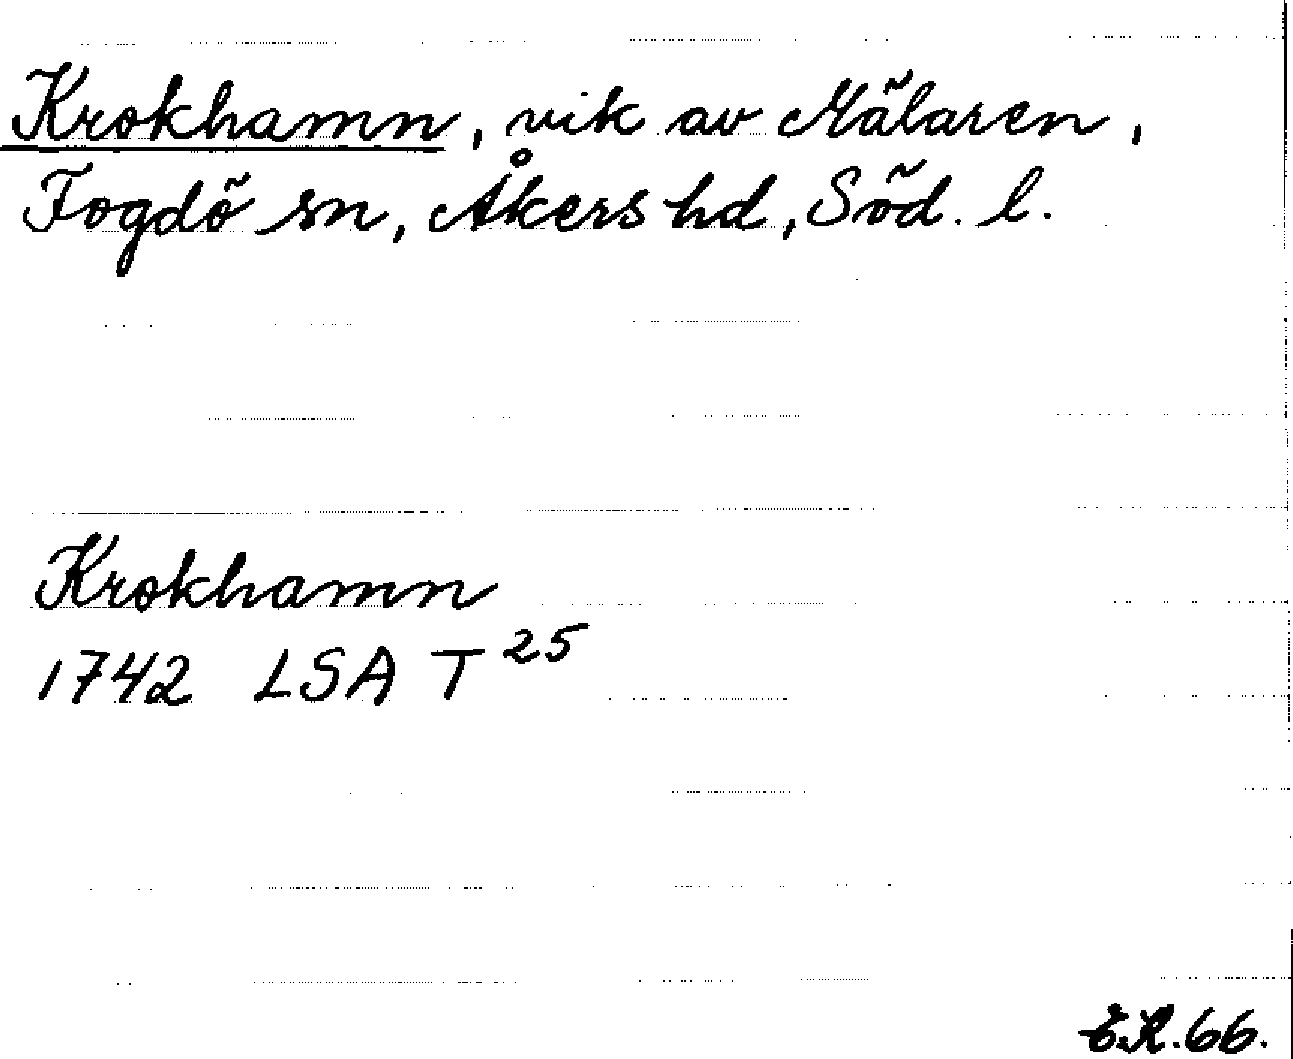 Krokhamn, vik av Mälaren,
Fogdö sn, Åkers hd, Söd. l.
Krokhamn
1742 LSA T 25
E.R. 66.